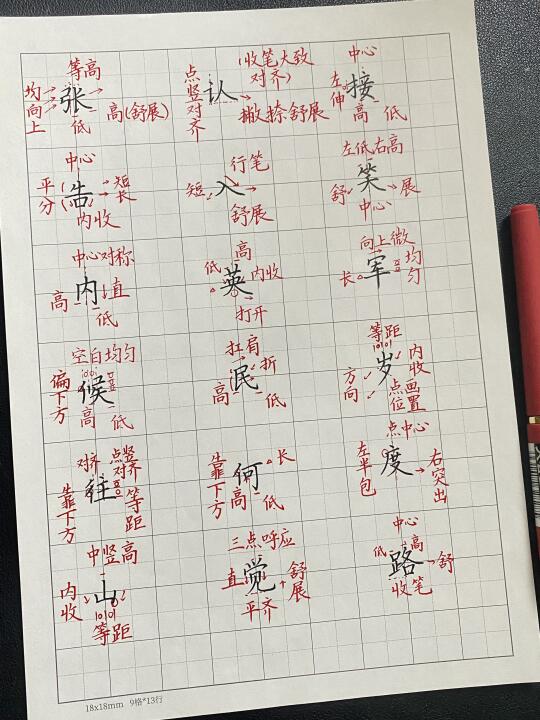 等高
均向上 张 高(舒展)
低
(收笔大致对齐)
点竖对齐 认
撇捺舒展
中心
左伸 接
高 低
中心
平分 告 短 长
内收
行笔
短 入
舒展
左低右高
舒 笑 展
中心
中心对称
高 内 直
低
高
低 英 内收
打开
向上微
长 军 均匀
空白均匀
偏下方 候
高 低
扛肩
民 折
高 低
等距
方向 岁 内收
点画位置
对齐 往 点竖对齐
靠下方 等距
靠下方 何 长
高 低
点中心
左半包 度 右突出
中竖高
内收 山
等距
三点呼应
直 觉 舒展
平齐
中心
低 高
路 舒
收笔
18x18mm 9格*13行